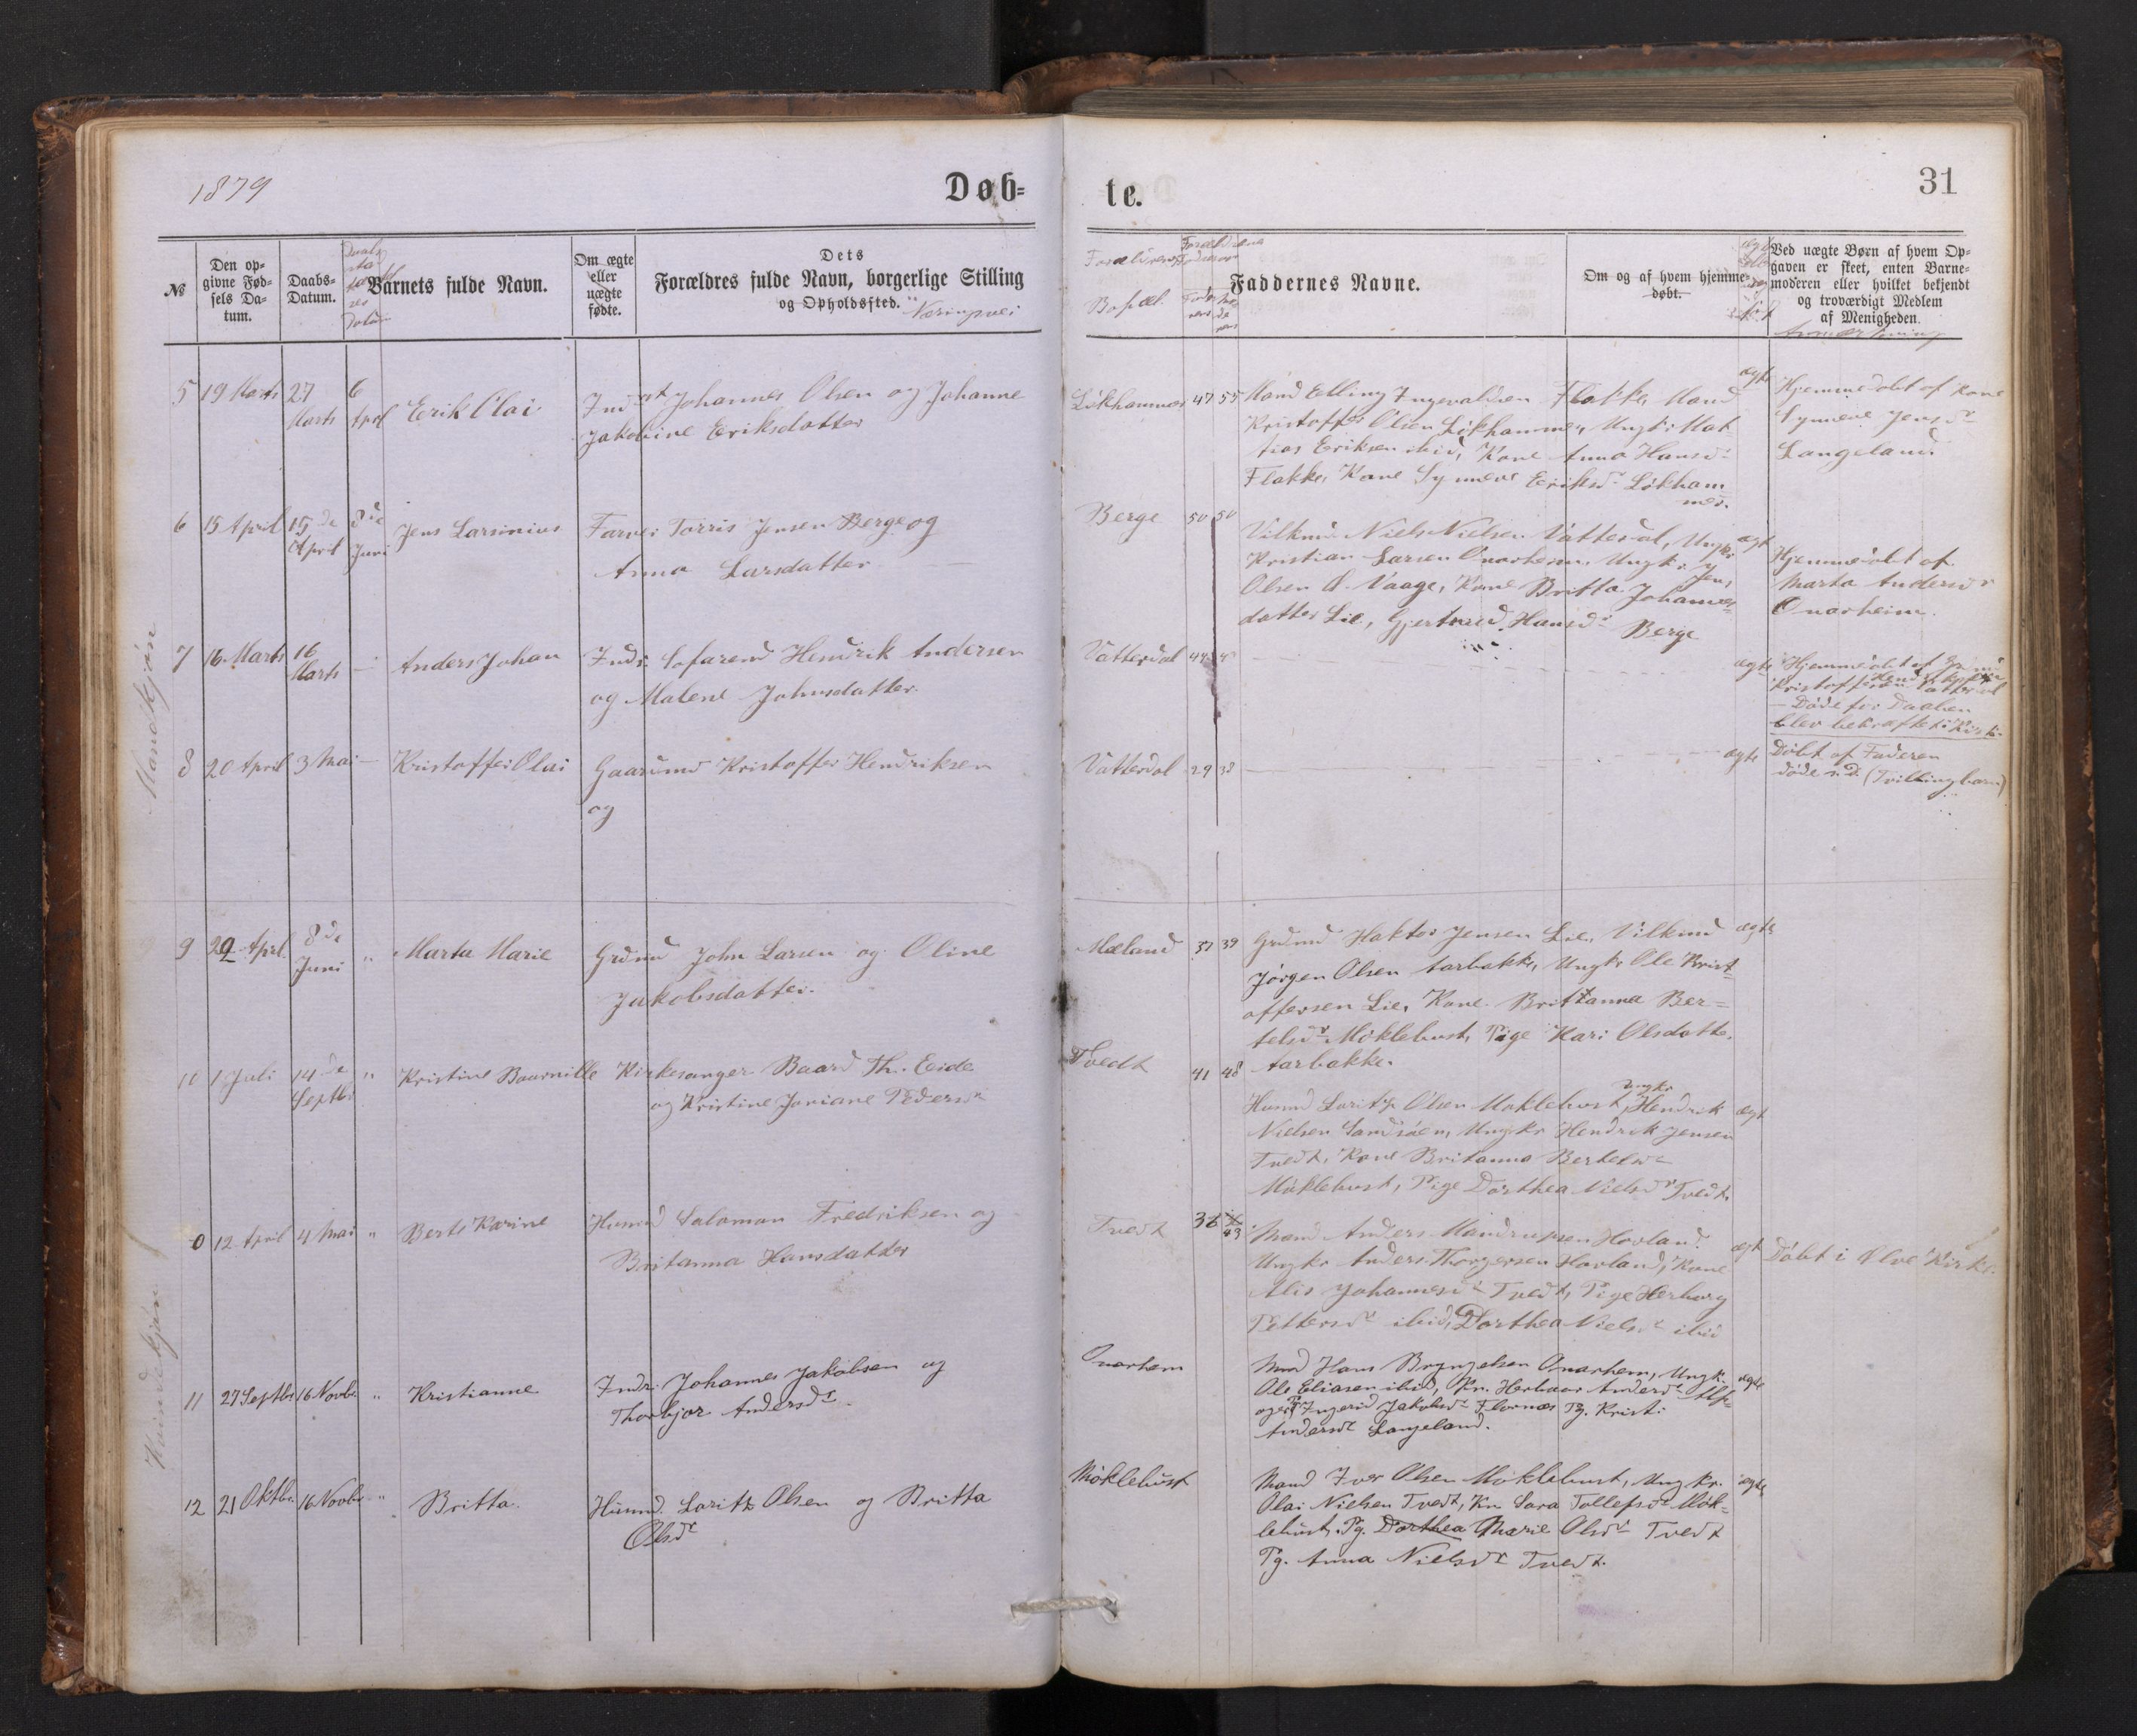 1879
Døb=
te.
31
№
Den op-
givne Fød-
sels Da-
tum.
Daabs-
Datum.
Barnets fulde Navn.
Om ægte
eller
uægte
fødte.
Dets
Forældres fulde Navn, borgerlige Stilling
og Opholdssted.
Næringsvei
Forældrenes
Bopæl.
Faddernes Navne.
Om og af hvem hjemme-
døbt.
Ved uægte Børn af hvem Op-
gaven er skeet, enten Barne-
moderen eller hvilket bekjendt
og troværdigt Medlem
af Menigheden.
Anmærkning
Mandkjøn
5 19 Marts 27 Marts 6 Apl Erik Olai
Johannes Olsen og Johanne
Jakobine Eriksdatter
Løkhammer 47 55
Mand Elling Ingevaldsen Flakke, Mand
Kristoffer Olsen Løkhammer, Ungk: Mat-
tias Eriksen ibid, Kone Anna Hansdr
Flakke, Kone Synneve Eriksdr Løkham
mer.
ægte
Hjemmedøbt af Kone
Synneve Jensdr
Langeland.
6 15 April 15de April 8de Juni Jens Larsinius
Farver Torris Jensen Berge og
Anna Larsdatter
Berge 50 50
Niels Nielsen Vatterdal, Ungkr
Kristian Larsen Onarheim, Ungkr Jens
Olsen Vaage, Kone Britta Johannes-
datter Lie, Gjertrud Hansdr Berge
ægt
Hjemmedøbt af
Marta Andersdr
Onarheim.
7 16 Marts 16 Marts — Anders Johan
Indr: Hendrik Andersen
og Malene Johnsdatter.
Vatterdal 44
ægte
Hjemmedøbt af
Kristoffer
— Døde før Daaben
blev bekræftet i Kirk-
8 20 April 3 Mai — Kristoffer Olai
Gaarmd Kristoffer Hendriksen
og
Vatterdal 29 38
ægte
Døbt af Faderen
døde (Tvillingbarn)
Kvindekjøn
9 29 Apl. 8de Juni " Marta Marie
Grdmd John Larsen og Oline
Jakobsdatter.
Mæland 37 39
Grdmd Haktor Jensen Lie,
Jørgen Olsen Aarbakke, Ungkr Ole Krist-
offersen Lie, Kone Brittanna Ber=
telsdr Møklebust, Pige Kari Olsdatte.
Aarbakke.
ægte
1 Juli 14de Septbr " Kristine Baarnille
Kirkesanger Baard Th. Eide
og Kristine Joriane Pedersdr
Tvedt 41 48
Husmd Laritz Olsen Møklebust, Ungkr Hendrik
Nielsen Ungkr Hendrik Jensen
Tvedt, Kone Britanna Bertelsdr
Møklebust, Pige Dorthea Nielsdr Tvedt.
ægt
0 12 April 4 Mai " Berte Karine
Husmd Salomon Fredriksen og
Britanna Hansdatter
Tvedt 36 43
Mand Anders Mandrupsen Hovland.
Ungkr Anders Thorgersen Hovland, Kone
Alis Johannesdr Tvedt, Pige Herborg
Pettersdr ibid, Dorthea Nielsdr ibid
ægt
Døbt i Ølve Kirke.
11 27 Septbr. 16 Novbr. " Kristianne
Indr: Johannes Jakobsen og
Thorbjør Andersdr.
Onarhem
Mnd Hans Brynjelsen Onarhem, Ungkr.
Ole Eliasen ibid, Kn. Herborg Andersdr
Ingerid Jakobsdr Flornes Pg. Kristi
Andersdr Langeland.
ægte
12 21 Oktbr. 16 Novbr. " Britta.
Husmd. Laritz Olsen og Britta
Olsdr
Møklebust
Mand Iver Olsen Møklebust, Ungkr.
Olai Nielsen Tvedt, Kn Sara Tollefsdr Møk-
lebust, Pg. Dorthea Marie Olsdr Tvedt
Pg. Anna Nielsdr Tvedt.
ægte